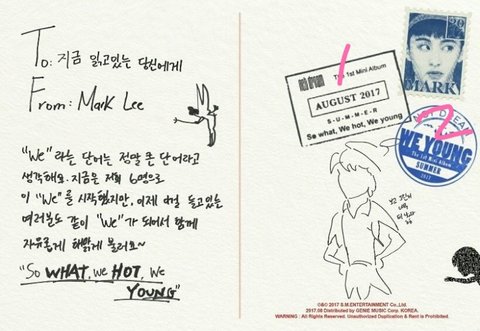 To: 지금 읽고있는 당신에게
From: Mark Lee
"We" 라는 단어는 정말 큰 단어라고
생각해요. 지금은 저희 6명으로
이 "We"를 시작했지만, 이제 이걸 듣고있는
여러분도 같이 "We"가 되어서 함께
자유롭게 해맑게 불러요~
"So WHAT, We HOT, We
YOUNG"
1
The 1st Mini Album
AUGUST 2017
S - U - M - M - E - R
So what, We hot, We young
MARK
2
NCT DREAM
WE YOUNG
The 1st Mini Album
SUMMER
2017
©&℗ 2017 S.M.ENTERTAINMENT Co.,Ltd.
2017.08 Distributed by GENIE MUSIC Corp. KOREA.
WARNING : All Rights Reserved. Unauthorized Duplication & Rent is Prohibited.